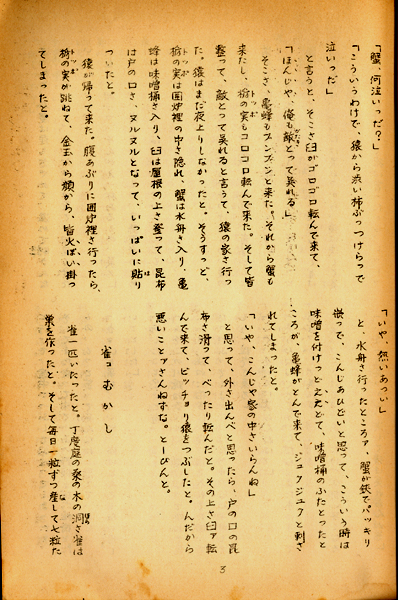 「蟹、何泣いっだ？」
「こういうわけで、猿から渋い柿ぶっつけらっで
泣いっだ」
と言うと、そこさ臼がゴロゴロ転んで来て、
「ほんじゃ、俺も敵とって呉れる」
そこさ、亀蜂もブンブンと来た。それから蟹も
来たし、栃の実もコロコロ転んで来た。そして皆
登って、敵とって呉れると言うて、猿の家さ行っ
た。猿はまだ夜上りしなかったと。そうすっど、
栃の実は囲炉裡の中さ隠れ、蟹は水舟さ入り、亀
蜂は味噌桶さ入り、臼は屋根の上さ登って、昆布
は戸の口さ、ヌルヌルとなって、いっぱいに貼り
ついたと。
猿が帰って来た。腹あぶりに囲炉裡さ行ったら、
栃の実が跳ねて、金玉から頬から、皆火ばい掛っ
てしまったと。
「いや、熱いあつい」
と、水舟さ行ったところァ、蟹が鋏でパッキリ
嵌って、こんじぁひどいと思って、こういう時は
味噌を付けっどええどて、味噌桶のふたとったと
ころが、亀蜂がとんで来て、ジュクジュクと刺さ
れてしまったと。
「いや、こんじゃ家の中さいらんね」
と思って、外さ出んべと思ったら、戸の口の昆
布さ滑って、べったり転んだと。その上さ臼ァ転
んで来て、ビッチョリ猿をつぶしたと。んだから
悪いことァさんねずな。とーびんと。
雀コむかし
雀一匹いたったと。丁度庭の桑の木の洞さ雀は
巣を作ったと。そして毎日一粒ずつ産して七粒た
3